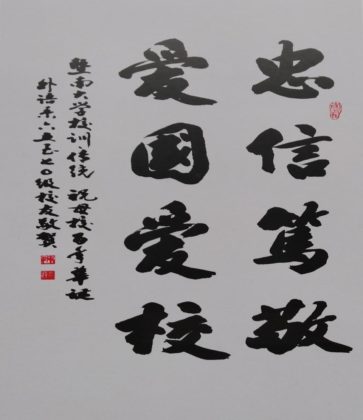 忠信篤敬
爱國爱校
暨南大学校训传统 祝母校百年華诞
外语系六五至七〇级校友敬贺